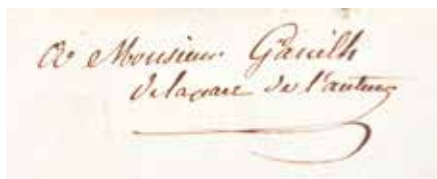 A Monsieur Ganilh
de la part de l'auteur